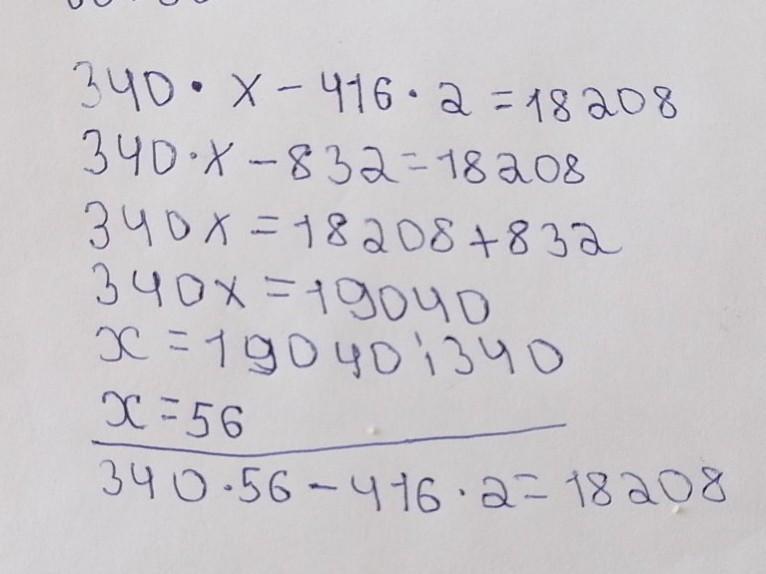 340 · x - 416 · 2 = 18208
340 · x - 832 = 18208
340x = 18208 + 832
340x = 19040
x = 19040 : 340
x = 56
340 · 56 - 416 · 2 = 18208